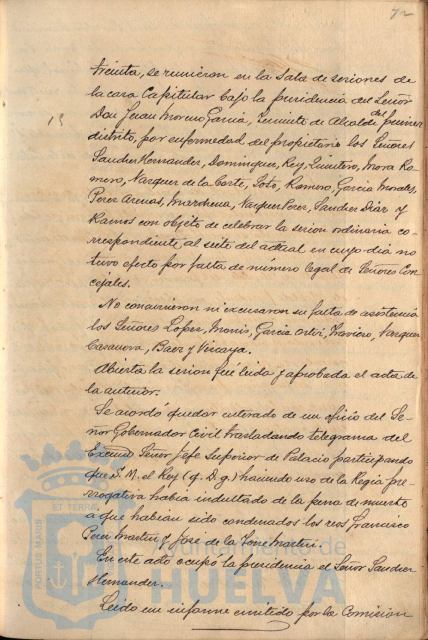 72
treinta, se reunieron en la Sala de sesiones de
la casa Capitular bajo la presidencia del Señor
Don Juan Moreno Garcia, Teniente de Alcalde del primer
distrito, por enfermedad del propietario los Señores
Sanchez Hernandez, Dominguez, Rey, Quintero, Mora Ro-
mero, Vazquez de la Corte, Soto, Romero, Garcia Morales,
Perez Arenas, Marchena, Vazquez Perez, Sanchez Diaz y
Ramos con objeto de celebrar la sesion ordinaria co-
rrespondiente al siete del actual en cuyo dia no
tuvo efecto por falta de número legal de Señores Con-
cejales.
No concurrieron ni excusaron su falta de asistencia
los Señores Lopez, Monis, Garcia Ortiz, Traviero, Vazquez
Casanova, Baez y Vizcaya.
Abierta la sesion fué leida y aprobada el acta de
la anterior.
Se acordó quedar enterado de un oficio del Se-
ñor Gobernador Civil trasladando telegrama del
Excmo Señor Jefe Superior de Palacio participando
que S. M. el Rey (q. D. g.) haciendo uso de la Regia pre-
rrogativa habia indultado de la pena de muerte
a que habian sido condenados los reos Francisco
Perez Martin y José de la Torre Martin.
En este acto ocupó la presidencia el Señor Sanchez
Hernandez.
Leido un informe emitido por la Comision
PORTUS MARIS ET TERRAE
Ayuntamiento de
HUELVA